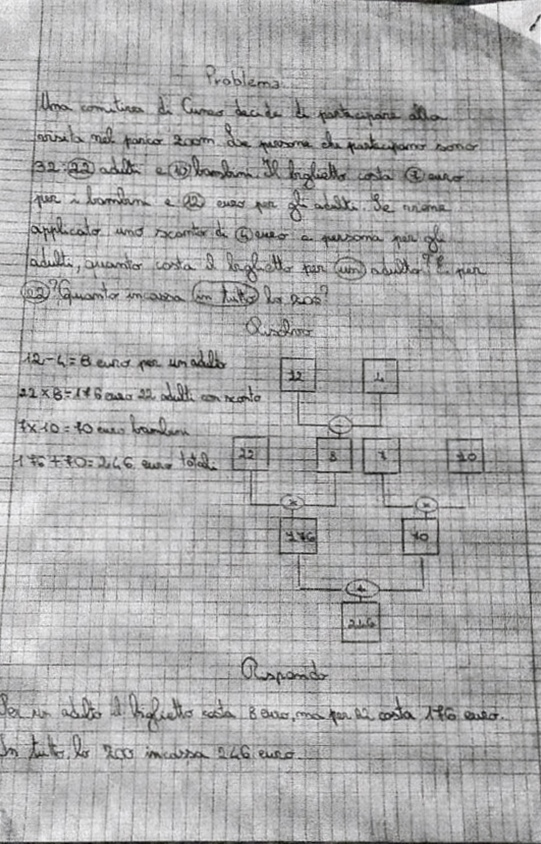 Problema
Una comitiva di Cuneo decide di partecipare alla
visita nel parco zoom. Le persone che partecipano sono
32: 22 adulti e 10 bambini. Il biglietto costa 7 euro
per i bambini e 12 euro per gli adulti. Se viene
applicato uno sconto di 4 euro a persona per gli
adulti, quanto costa il biglietto per un adulto? E per
22? Quanto incassa in tutto lo zoo?
Risolvo
12-4=8 euro per un adulto
22x8=176 euro 22 adulti con sconto
7x10=70 euro bambini
176+70=246 euro totali
12 4
-
22 8 7 10
x x
176 70
+
246
Rispondo
Per un adulto il biglietto costa 8 euro, ma per 22 costa 176 euro.
In tutto lo zoo incassa 246 euro.